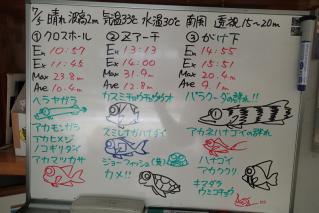 7/5 晴れ 波高2m 気温33℃ 水温30℃ 南風 透視15~20m
①クロスホール
En 10:57
Ex 11:45
Max 23.8m
Ave 10.4m
ヘラヤガラ
アカモンガラ
アカヒメジ
ノコギリダイ
アカマツカサ
②Zアーチ
En 13:13
Ex 14:00
Max 31.9m
Ave 12.8m
カスミチョウチョウウオ
スミレナガハナダイ
ジョーフィッシュ(黄)
カメ!!
③がけ下
En 14:55
Ex 15:51
Max 20.4m
Ave 9.1m
バラクーダの群れ!!
アカネハナゴイの群れ
ハナゴイ
アカククリ
キマダラ
ウミコチョウ